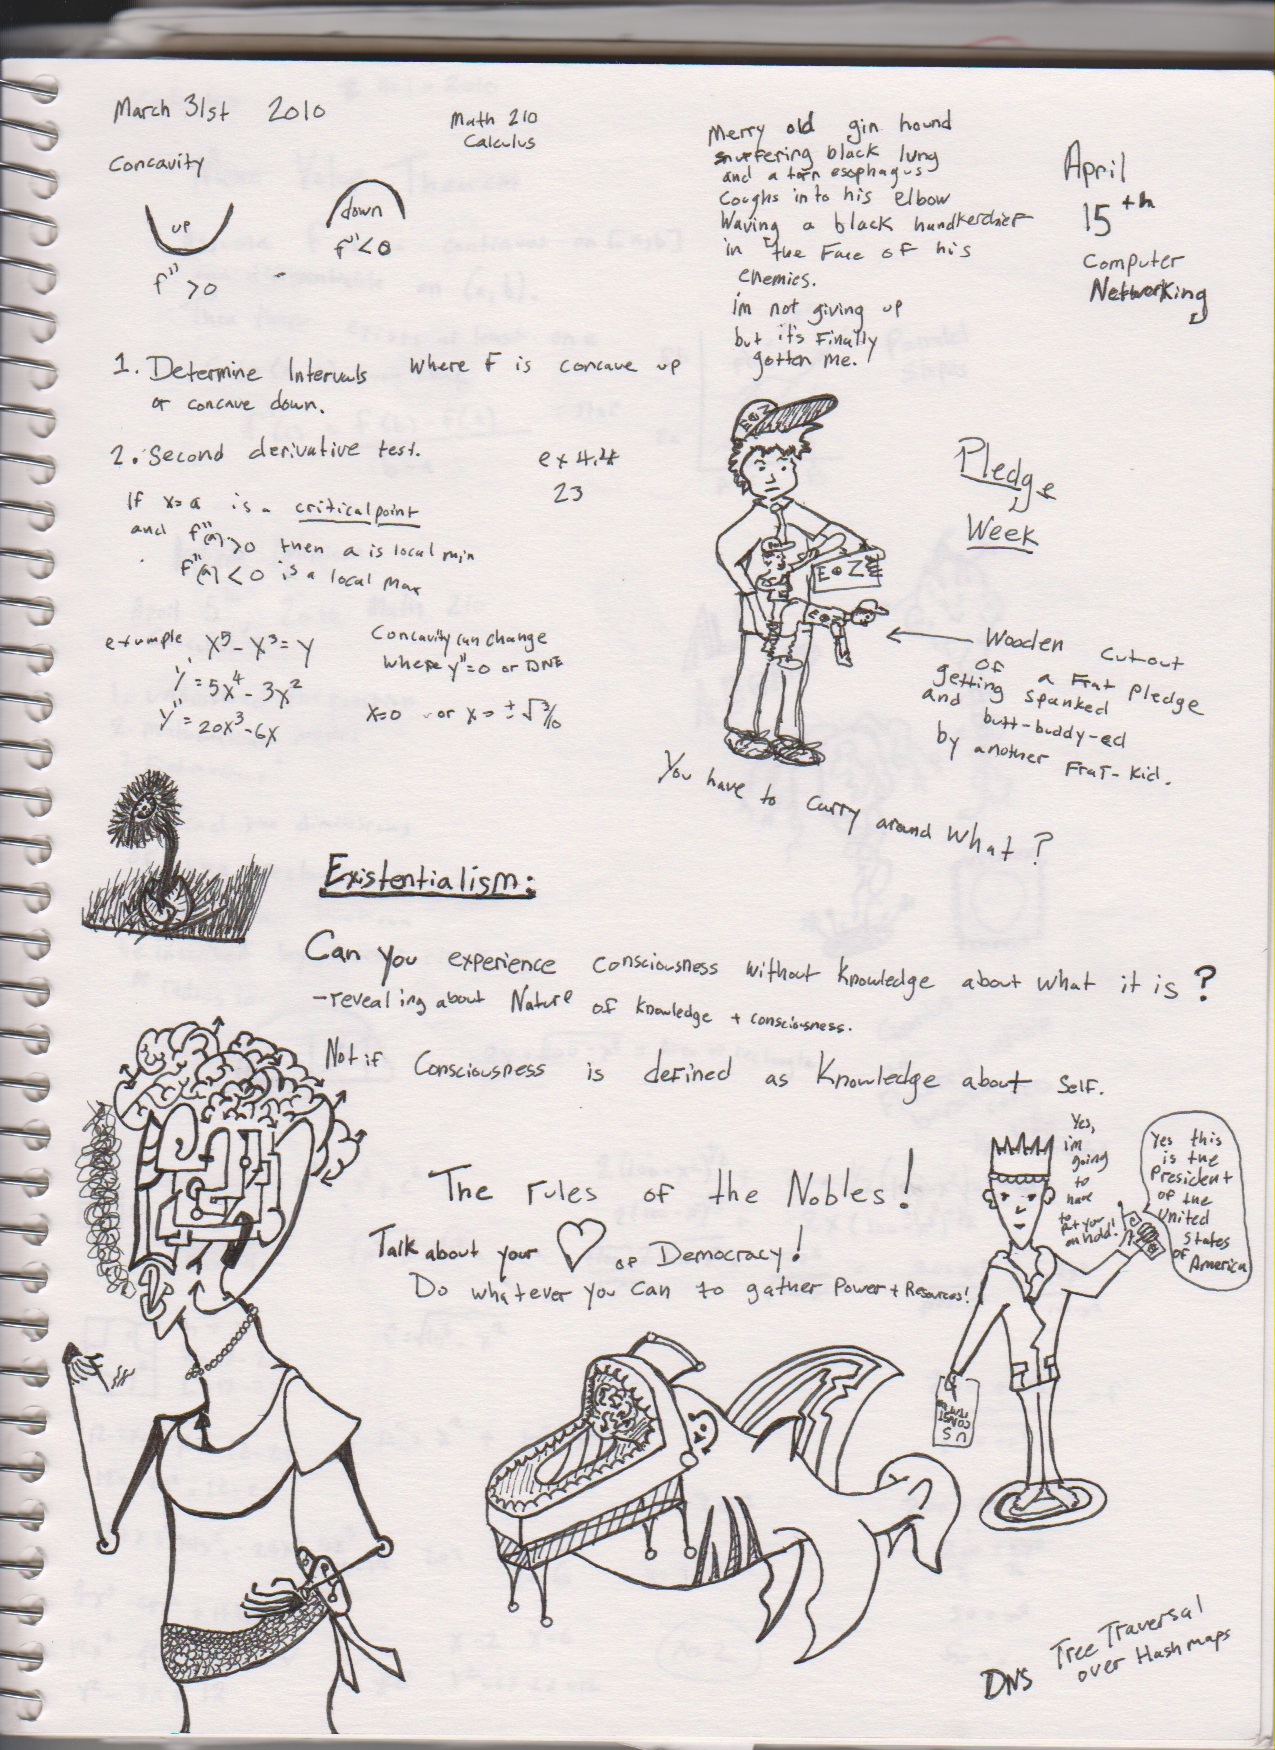 March 31st 2010
Math 210
Calculus
Concavity
up
f'' > 0
down
f'' < 0
1. Determine Intervals where F is concave up
or concave down.
2. Second derivative test.
ex 4.4
23
If x=a is a critical point
and f''(a) > 0 then a is local min
f''(a) < 0 is a local max
example x⁵ - x³ = y
y' = 5x⁴ - 3x²
y'' = 20x³ - 6x
Concavity can change
where y''=0 or DNE
x=0 or x = ±√3/10
Merry old gin hound
suffering black lung
and a torn esophagus
Coughs into his elbow
Waving a black handkerchief
in the Face of his
enemies.
i'm not giving up
but it's Finally
gotten me.
April
15th
Computer
Networking
Pledge
Week
Wooden cutout
of a Frat pledge
getting spanked
and butt-buddy-ed
by another Frat-kid.
You have to carry around what?
Existentialism:
Can you experience consciousness without knowledge about what it is?
- revealing about Nature of knowledge + consciousness.
Not if Consciousness is defined as Knowledge about self.
The rules of the Nobles!
Talk about your of Democracy!
Do whatever you can to gather Power + Resources!
Yes,
i'm
going
to
have
to
put you
on hold!
Yes this
is the
President
of the
United
States
of America
U S
CONST
DNS Tree Traversal
over Hashmaps